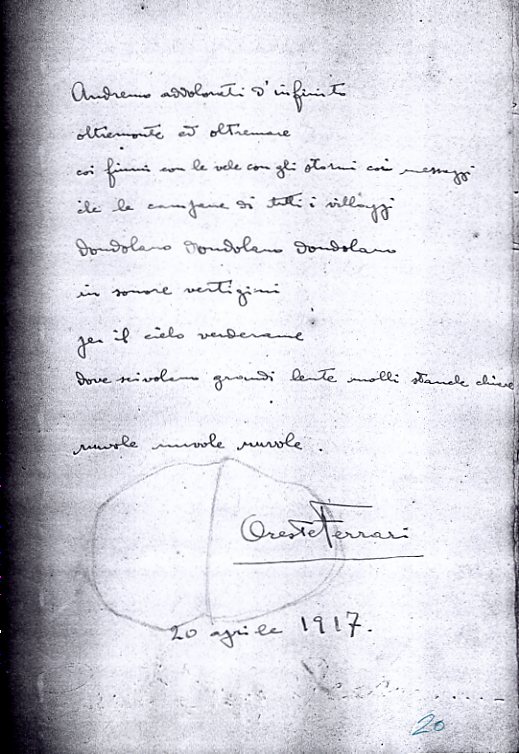 Andremo addolorati d'infinito
oltremonte ed oltremare
coi fiumi con le vele con gli stormi coi messaggi
che le campane di tutti i villaggi
dondolano dondolano dondolano
in sonore vertigini
per il cielo verderame
dove scivolano grandi lente molli stanche chiare
nuvole nuvole nuvole.
Oreste Ferrari
20 aprile 1917.
20